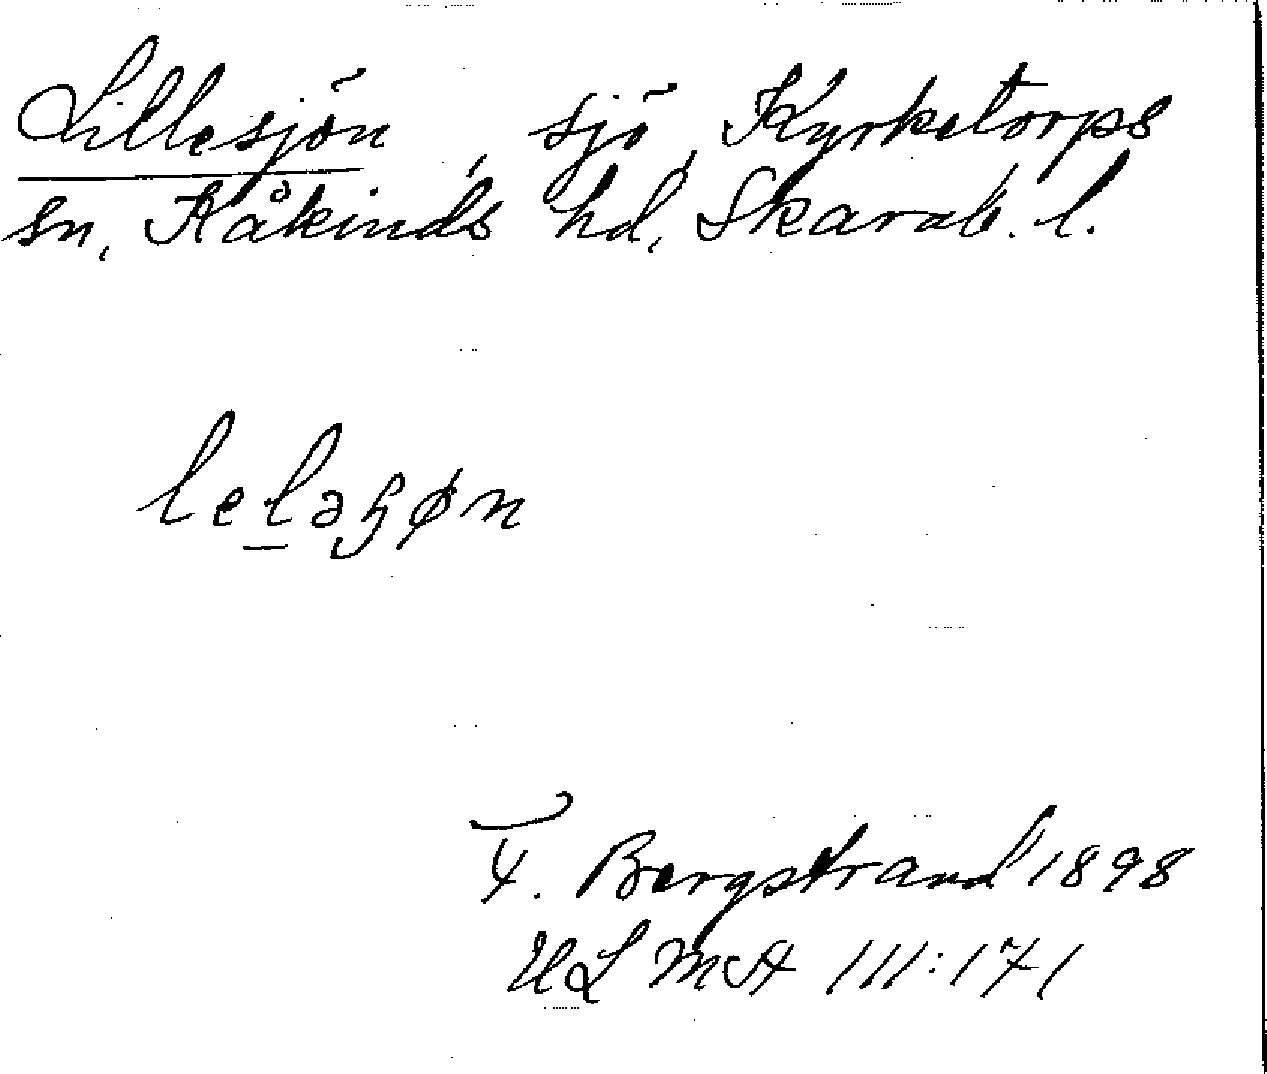 Lillesjön, sjö, Kyrketorps
sn, Kåkinds hd, Skarab. l.
leləɧøn
F. Bergstrand 1898
ULMA 111:171